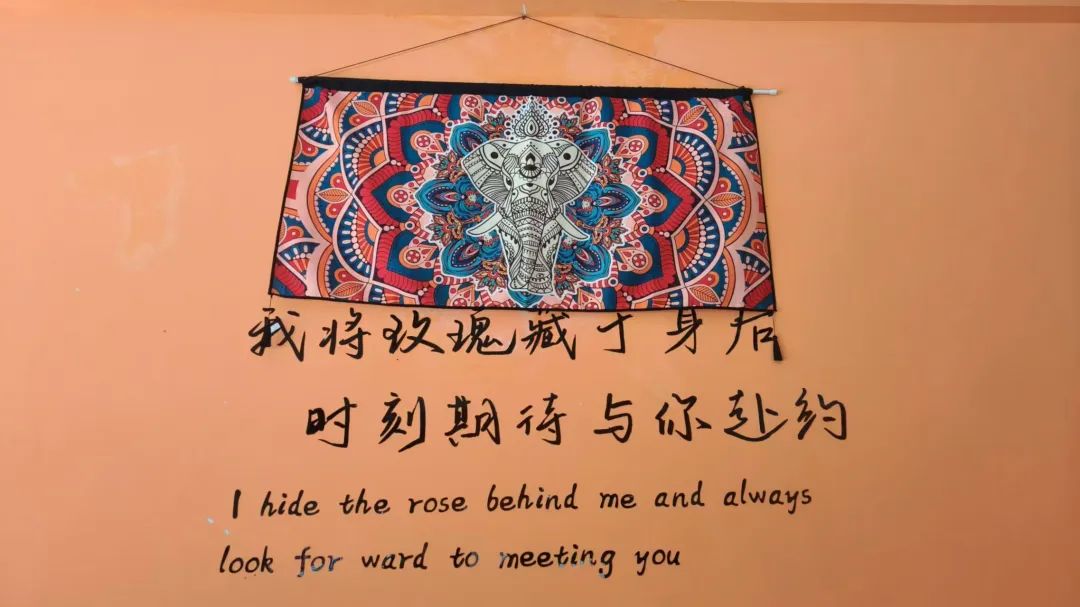 我将玫瑰藏于身后
时刻期待与你赴约
I hide the rose behind me and always
look for ward to meeting you